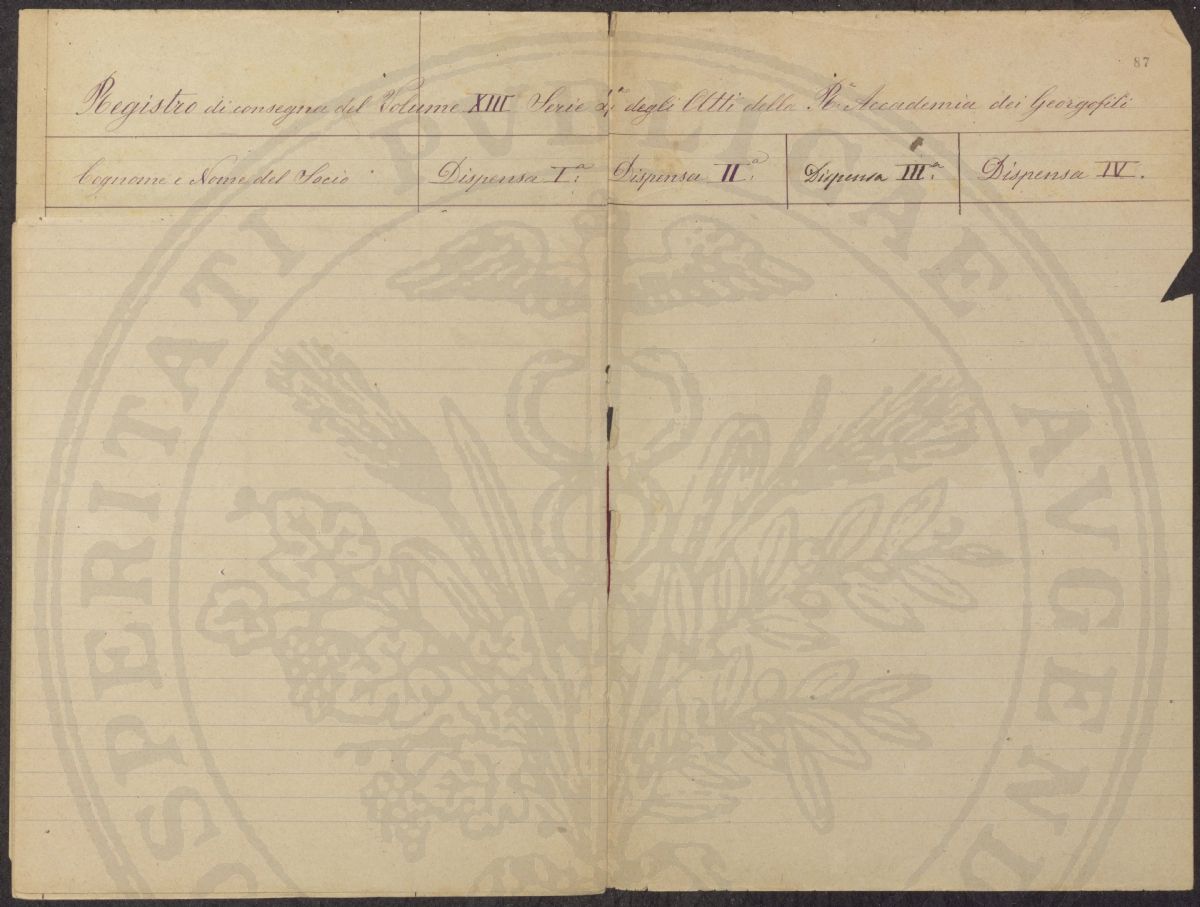 87
Registro di consegna del Volume XIII Serie 4ª degli Atti della Rª Accademia dei Georgofili
Cognome e Nome del Socio Dispensa Iª. Dispensa IIª. Dispensa IIIª. Dispensa IV.
PROSPERITATI PUBLICAE AVGENDAE